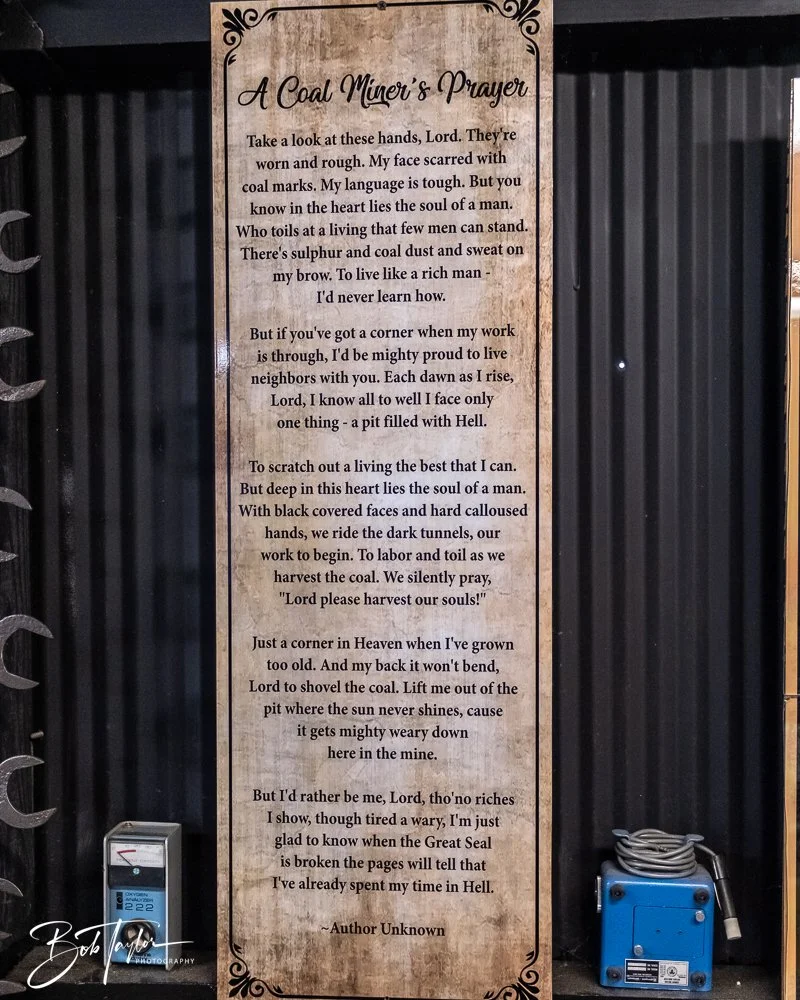 A Coal Miner's Prayer
Take a look at these hands, Lord. They're
worn and rough. My face scarred with
coal marks. My language is tough. But you
know in the heart lies the soul of a man.
Who toils at a living that few men can stand.
There's sulphur and coal dust and sweat on
my brow. To live like a rich man -
I'd never learn how.
But if you've got a corner when my work
is through, I'd be mighty proud to live
neighbors with you. Each dawn as I rise,
Lord, I know all to well I face only
one thing - a pit filled with Hell.
To scratch out a living the best that I can.
But deep in this heart lies the soul of a man.
With black covered faces and hard calloused
hands, we ride the dark tunnels, our
work to begin. To labor and toil as we
harvest the coal. We silently pray,
"Lord please harvest our souls!"
Just a corner in Heaven when I've grown
too old. And my back it won't bend,
Lord to shovel the coal. Lift me out of the
pit where the sun never shines, cause
it gets mighty weary down
here in the mine.
But I'd rather be me, Lord, tho'no riches
I show, though tired a wary, I'm just
glad to know when the Great Seal
is broken the pages will tell that
I've already spent my time in Hell.
~Author Unknown
OXYGEN
ANALYZER
222
Bob Taylor
PHOTOGRAPHY